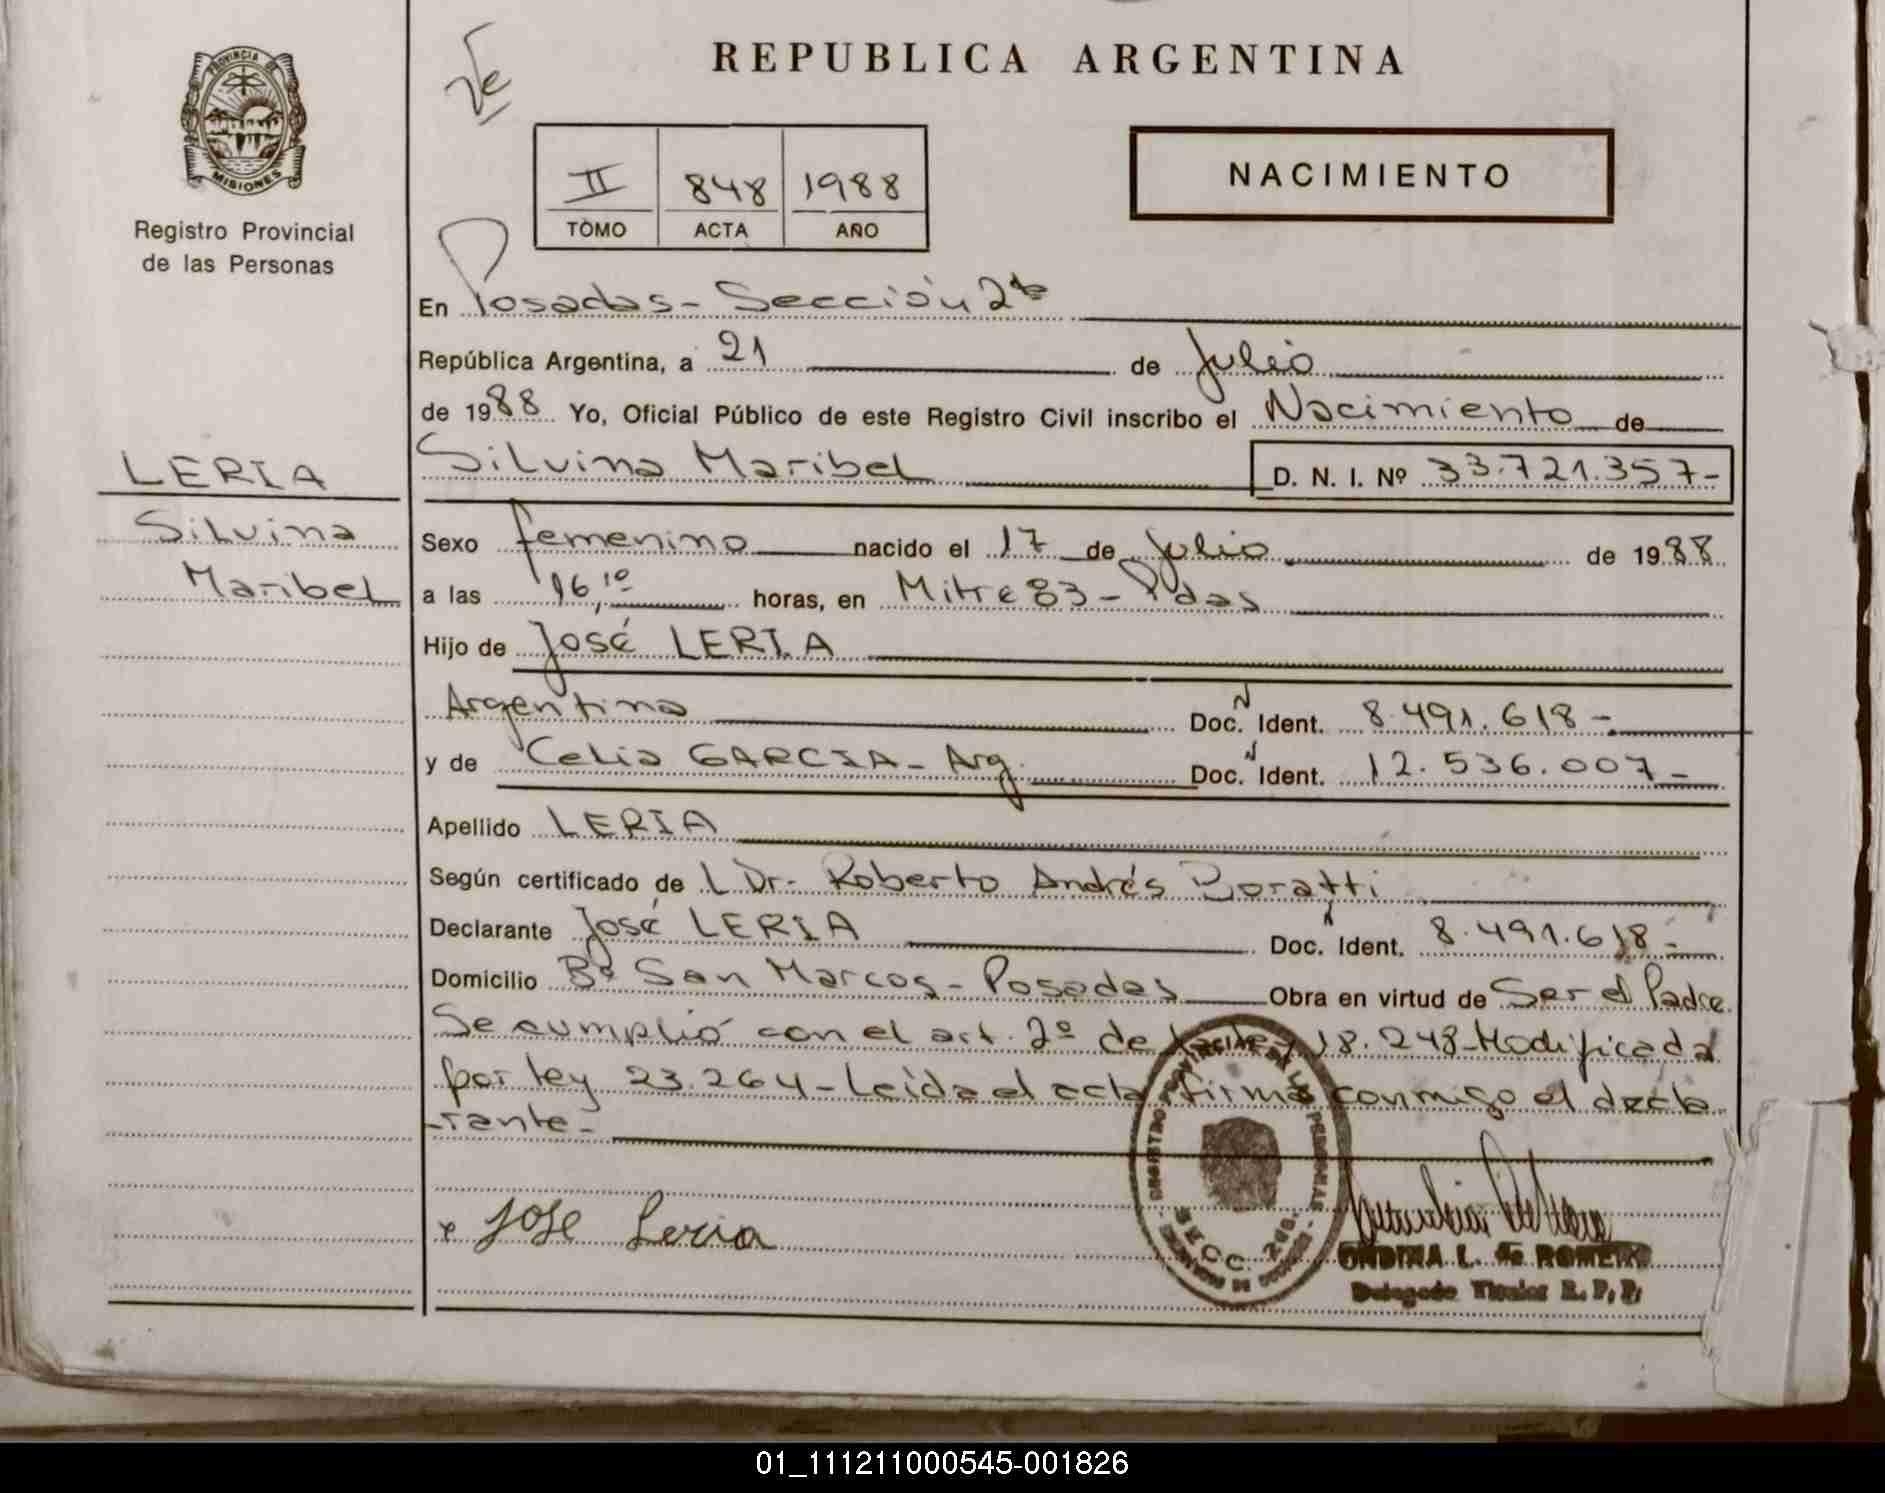 REPUBLICA ARGENTINA
PROVINCIA DE
MISIONES
Registro Provincial
de las Personas
II 848 1988
TOMO ACTA AÑO
NACIMIENTO
En Posadas - Sección 2ª
República Argentina, a 21 de Julio
de 1988 Yo, Oficial Público de este Registro Civil inscribo el Nacimiento de
Silvina Maribel D. N. I. Nº 33.721.357-
LERIA
Silvina
Maribel
Sexo femenino nacido el 17 de Julio de 1988
a las 16,10 horas, en Mitre 83 - Pdas
Hijo de José LERIA
Argentina Doc. Ident. 8.491.618-
y de Celia GARCIA - Arg. Doc. Ident. 12.536.007-
Apellido LERIA
Según certificado de L Dr. Roberto Andrés
Declarante José LERIA Doc. Ident. 8.491.618-
Domicilio Bº San Marcos - Posadas Obra en virtud de Ser el Padre
Se cumplió con el art. 2º de la ley 18.248 - Modificada
por ley 23.264 - Leída el acta firma conmigo el decla
-rante-
Jose Leria
SECC. 2da.
ONDINA L. de ROMERO
Delegado Titular R. P. P.
01_111211000545-001826